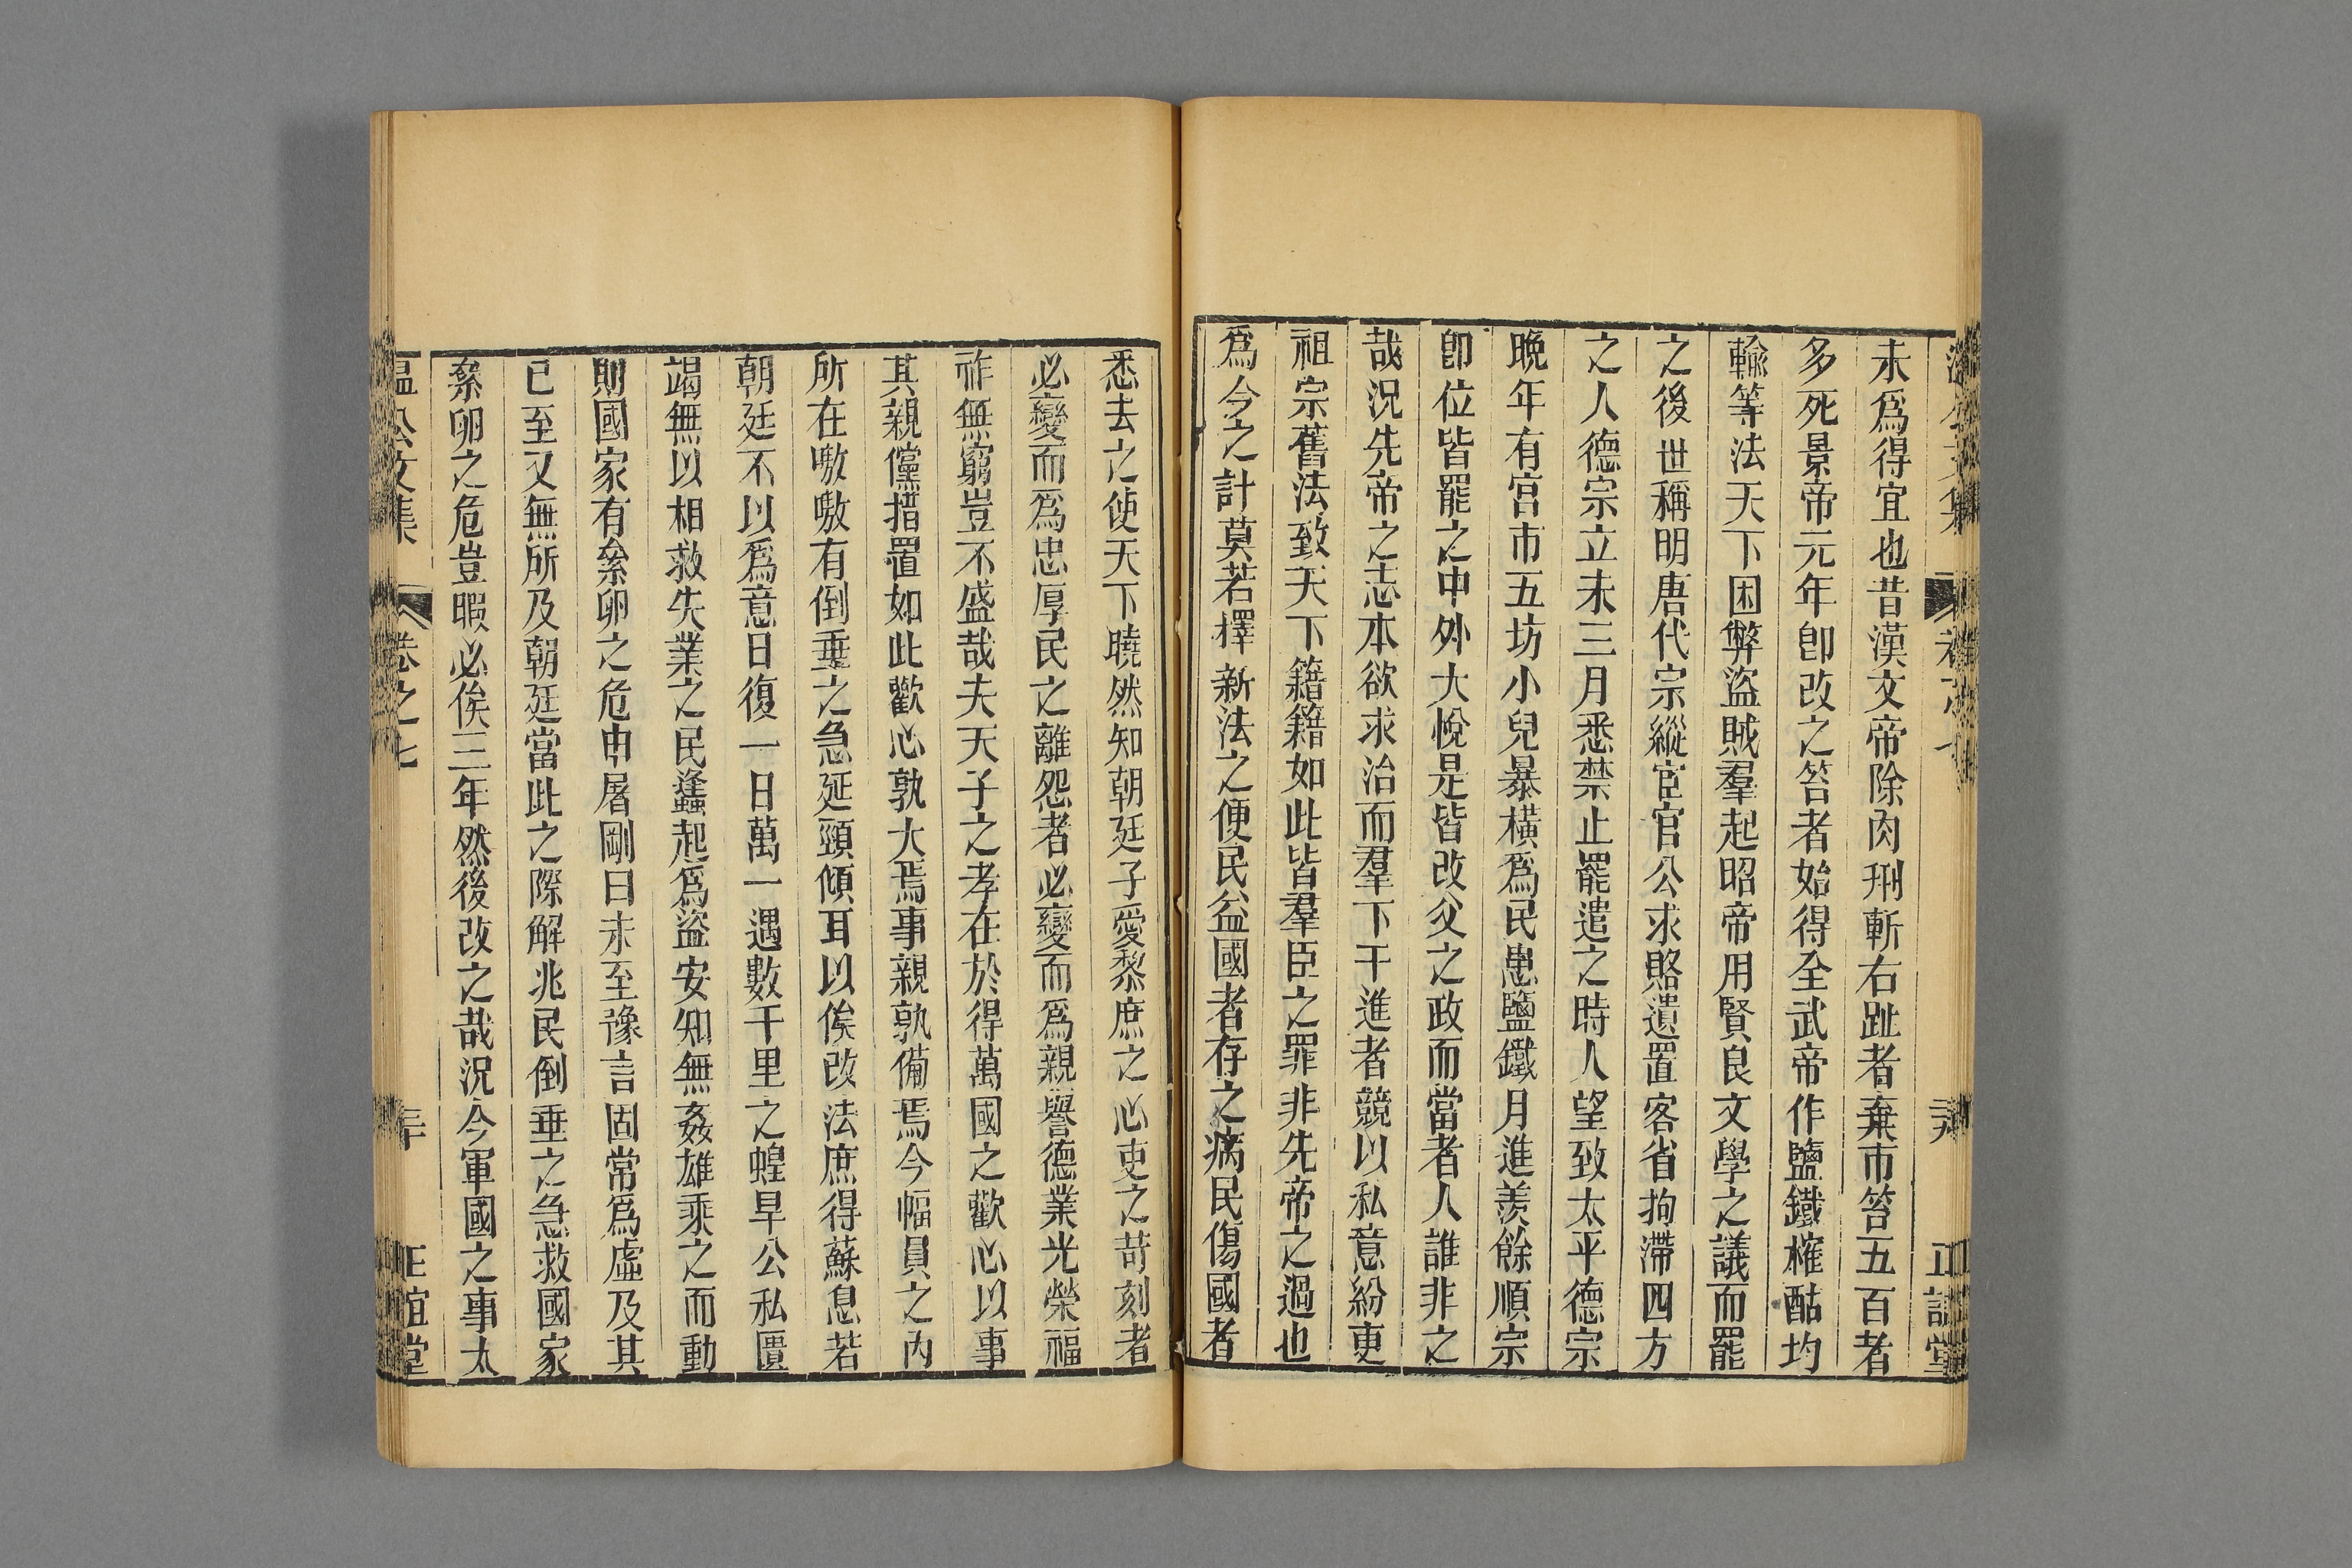 未爲得宜也昔漢文帝除肉刑斬右趾者棄市笞五百者
多死景帝元年卽改之笞者始得全武帝作鹽鐵榷酤均
輸等法天下困弊盜賊羣起昭帝用賢良文學之議而罷
之後世稱明唐代宗縱宦官公求賂遺置客省拘滯四方
之人德宗立未三月悉禁止罷遣之時人望致太平德宗
晚年有宮市五坊小兒暴橫爲民患鹽鐵月進羨餘順宗
卽位皆罷之中外大悅是皆改父之政而當者人誰非之
哉況先帝之志本欲求治而羣下干進者競以私意紛更
祖宗舊法致天下籍籍如此皆羣臣之罪非先帝之過也
爲今之計莫若擇新法之便民益國者存之病民傷國者
悉去之使天下曉然知朝廷子愛黎庶之心吏之苛刻者
必變而爲忠厚民之離怨者必變而爲親譽德業光榮福
祚無窮豈不盛哉夫天子之孝在於得萬國之歡心以事
其親儻措置如此歡心孰大焉事親孰備焉今幅員之內
所在嗷嗷有倒垂之急延頸傾耳以俟改法庶得蘇息若
朝廷不以爲意日復一日萬一遇數千里之蝗旱公私匱
竭無以相救失業之民蠭起爲盜安知無姦雄乘之而動
則國家有絫卵之危申屠剛曰未至豫言固常爲虛及其
已至又無所及朝廷當此之際解兆民倒垂之急救國家
絫卵之危豈暇必俟三年然後改之哉況今軍國之事太
溫公文集 卷之七 三十 正誼堂